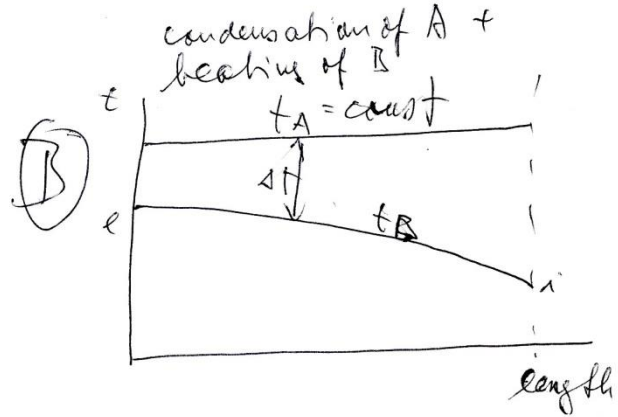 condensation of A +
heating of B
t
t_A = const
B
Δt
e
t_B
i
length